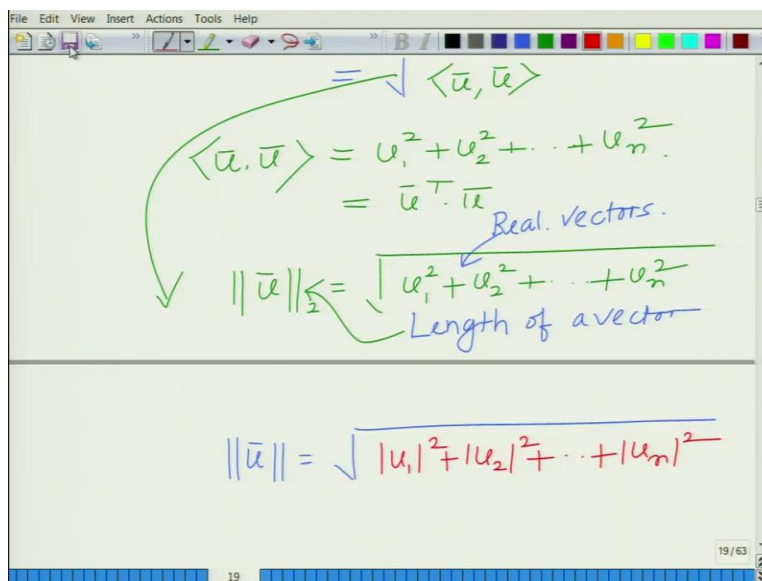 File Edit View Insert Actions Tools Help
» » B I
= √⟨ū, ū⟩
⟨ū. ū⟩ = u₁² + u₂² + ·· + uₙ².
= ūᵀ· ū
Real. vectors.
||ū||₂ = √(u₁² + u₂² + ·· + uₙ²)
Length of a vector
||ū|| = √(|u₁|² + |u₂|² + ·· + |uₙ|²)
19/63
19